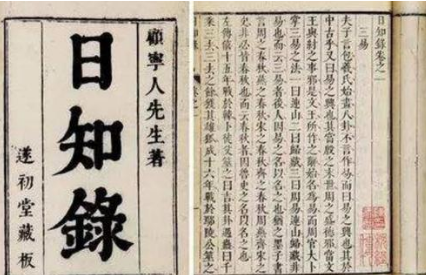 顧寧人先生著
日知錄
遂初堂藏板
日知錄卷之一
三易
夫子言包羲氏始畫八卦不言作易而曰易之興也其於
中古乎又曰易之興也其當殷之末世周之盛德邪當文
王與紂之事邪是文王所作之辭始名為易而周官大卜
掌三易之法一曰連山二曰歸藏三曰周易連山歸藏非
易也而云三易者後人因易之名以名之也猶之墨子書
言周之春秋燕之春秋宋之春秋齊之春秋周燕齊宋之
史非必皆春秋也而云春秋者因魯史之名以名之也
左傳僖十五年戰於韓卜徒父筮之曰吉其卦遇蠱曰千
乘三去三去之餘獲其雄狐成十六年戰於鄢陵公筮之